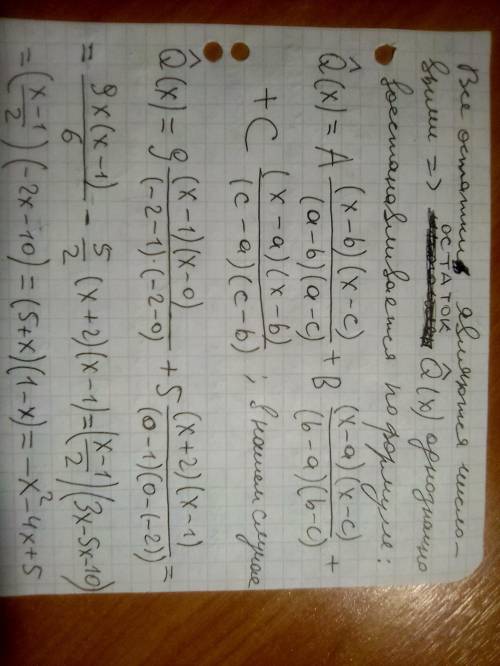 Все остатки являются число-
выми => остаток Q̂(x) однозначно
восстанавливается по формуле:
Q̂(x) = A (x-b)(x-c)/(a-b)(a-c) + B (x-a)(x-c)/(b-a)(b-c) +
+ C (x-a)(x-b)/(c-a)(c-b) ; в нашем случае
Q̂(x) = 9 (x-1)(x-0)/(-2-1)(-2-0) + 5 (x+2)(x-1)/(0-1)(0-(-2)) =
= 9x(x-1)/6 - 5/2 (x+2)(x-1) = (x-1/2)(3x-5x-10)
= (x-1/2)(-2x-10) = (5+x)(1-x) = -x²-4x+5